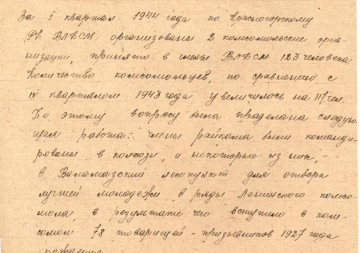 За I квартал 1944 года по Красногорскому
РК ВЛКСМ организованы 2 комсомольские орга-
низации, принято в члены ВЛКСМ 123 человека
Количество комсомольцев, по сравнению с
IV кварталом 1943 года увеличилось на 117 чел.
По этому вопросу была проделана следую-
щая работа: члены райкома были команди-
рованы в колхозы, и некоторые из них, -
в Валамазский лесопункт для отбора
лучшей молодежи в ряды Ленинского комсо-
мола, в результате чего вступило в ком-
сомол 78 товарищей - призывников 1927 года
рождения